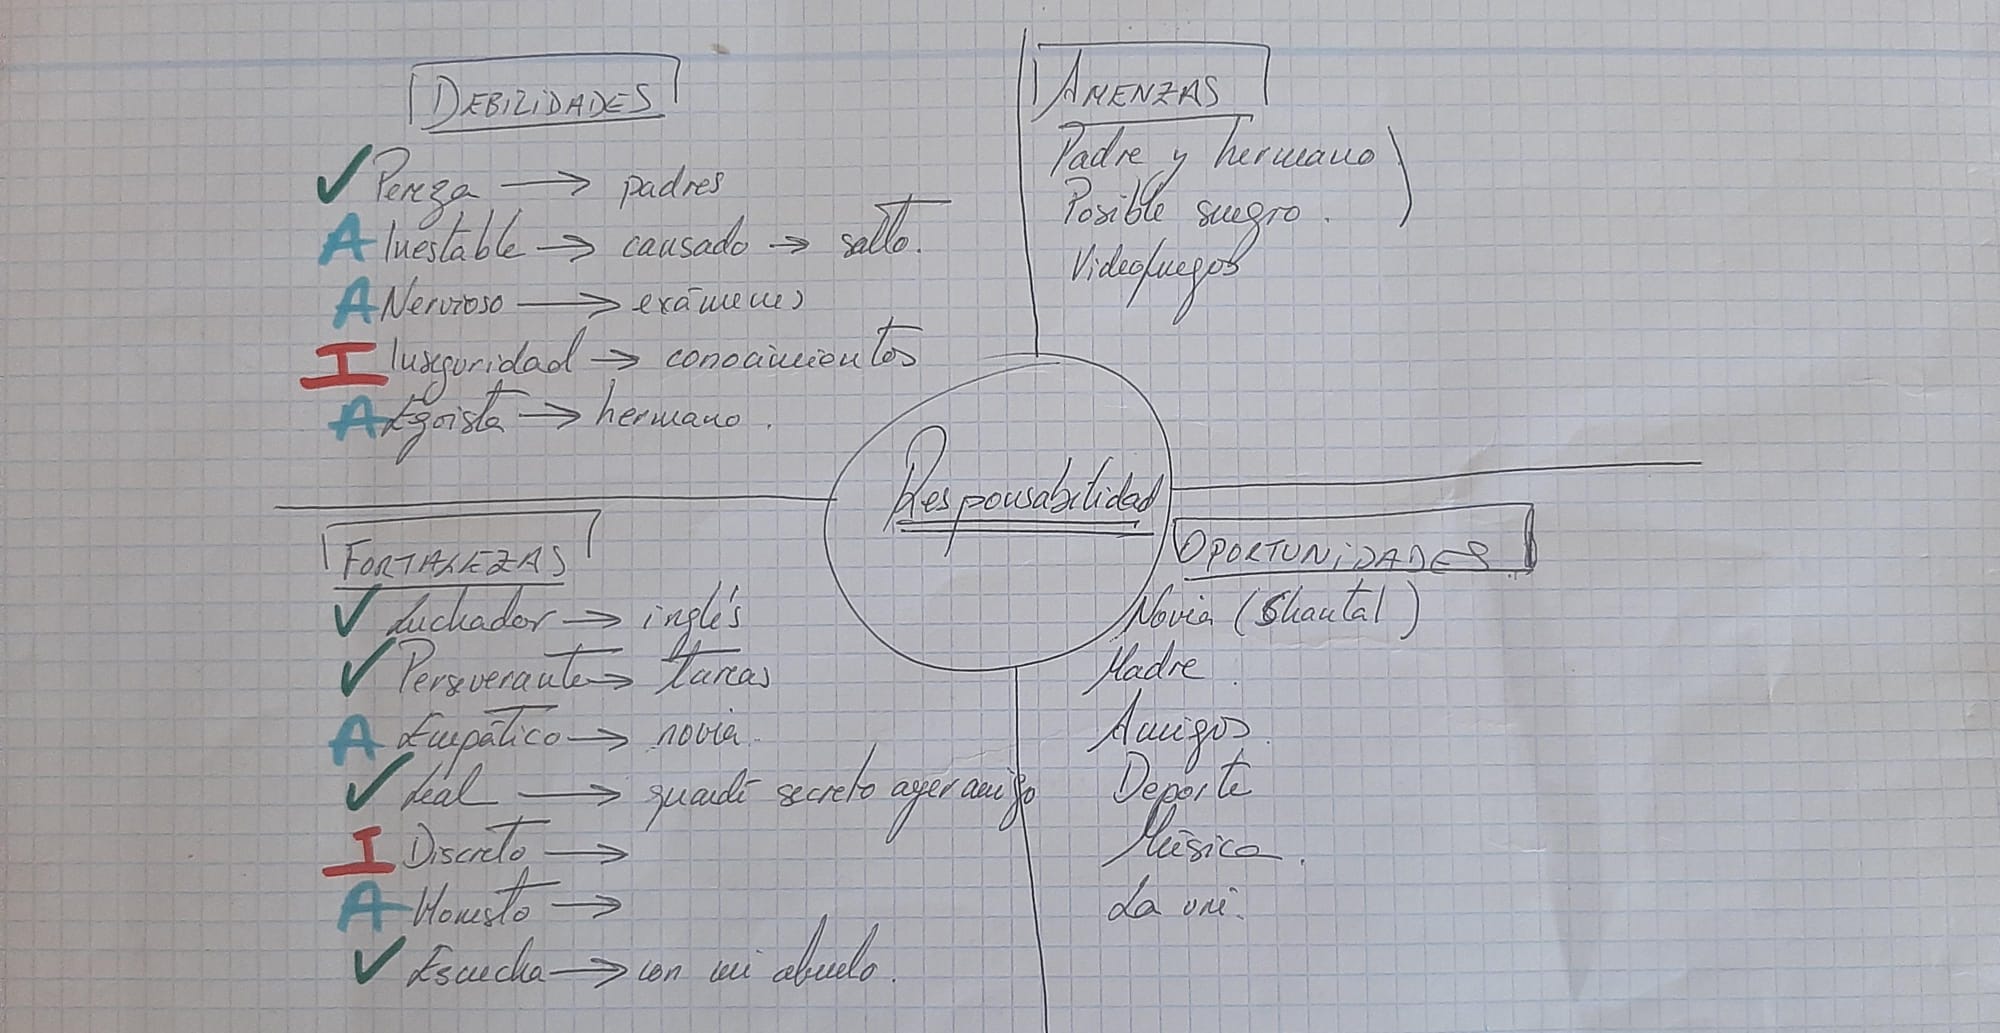 DEBILIDADES
✓ Pereza → padres
A Inestable → causado → salto.
A Nervioso → exámenes
I Inseguridad → conocimientos
A Egoista → hermano.
AMENZAS
Padre y hermano
Posible suegro.
Videojuegos
Responsabilidad
FORTALEZAS
✓ Luchador → inglés
✓ Perseverante → tareas
A Empático → novia.
✓ Leal → guardé secreto ayer amigo
I Discreto →
A Honesto →
✓ Escucha → con mi abuelo.
OPORTUNIDADES
Novia (Shantal)
Madre.
Amigos.
Deporte
Música.
La uni.